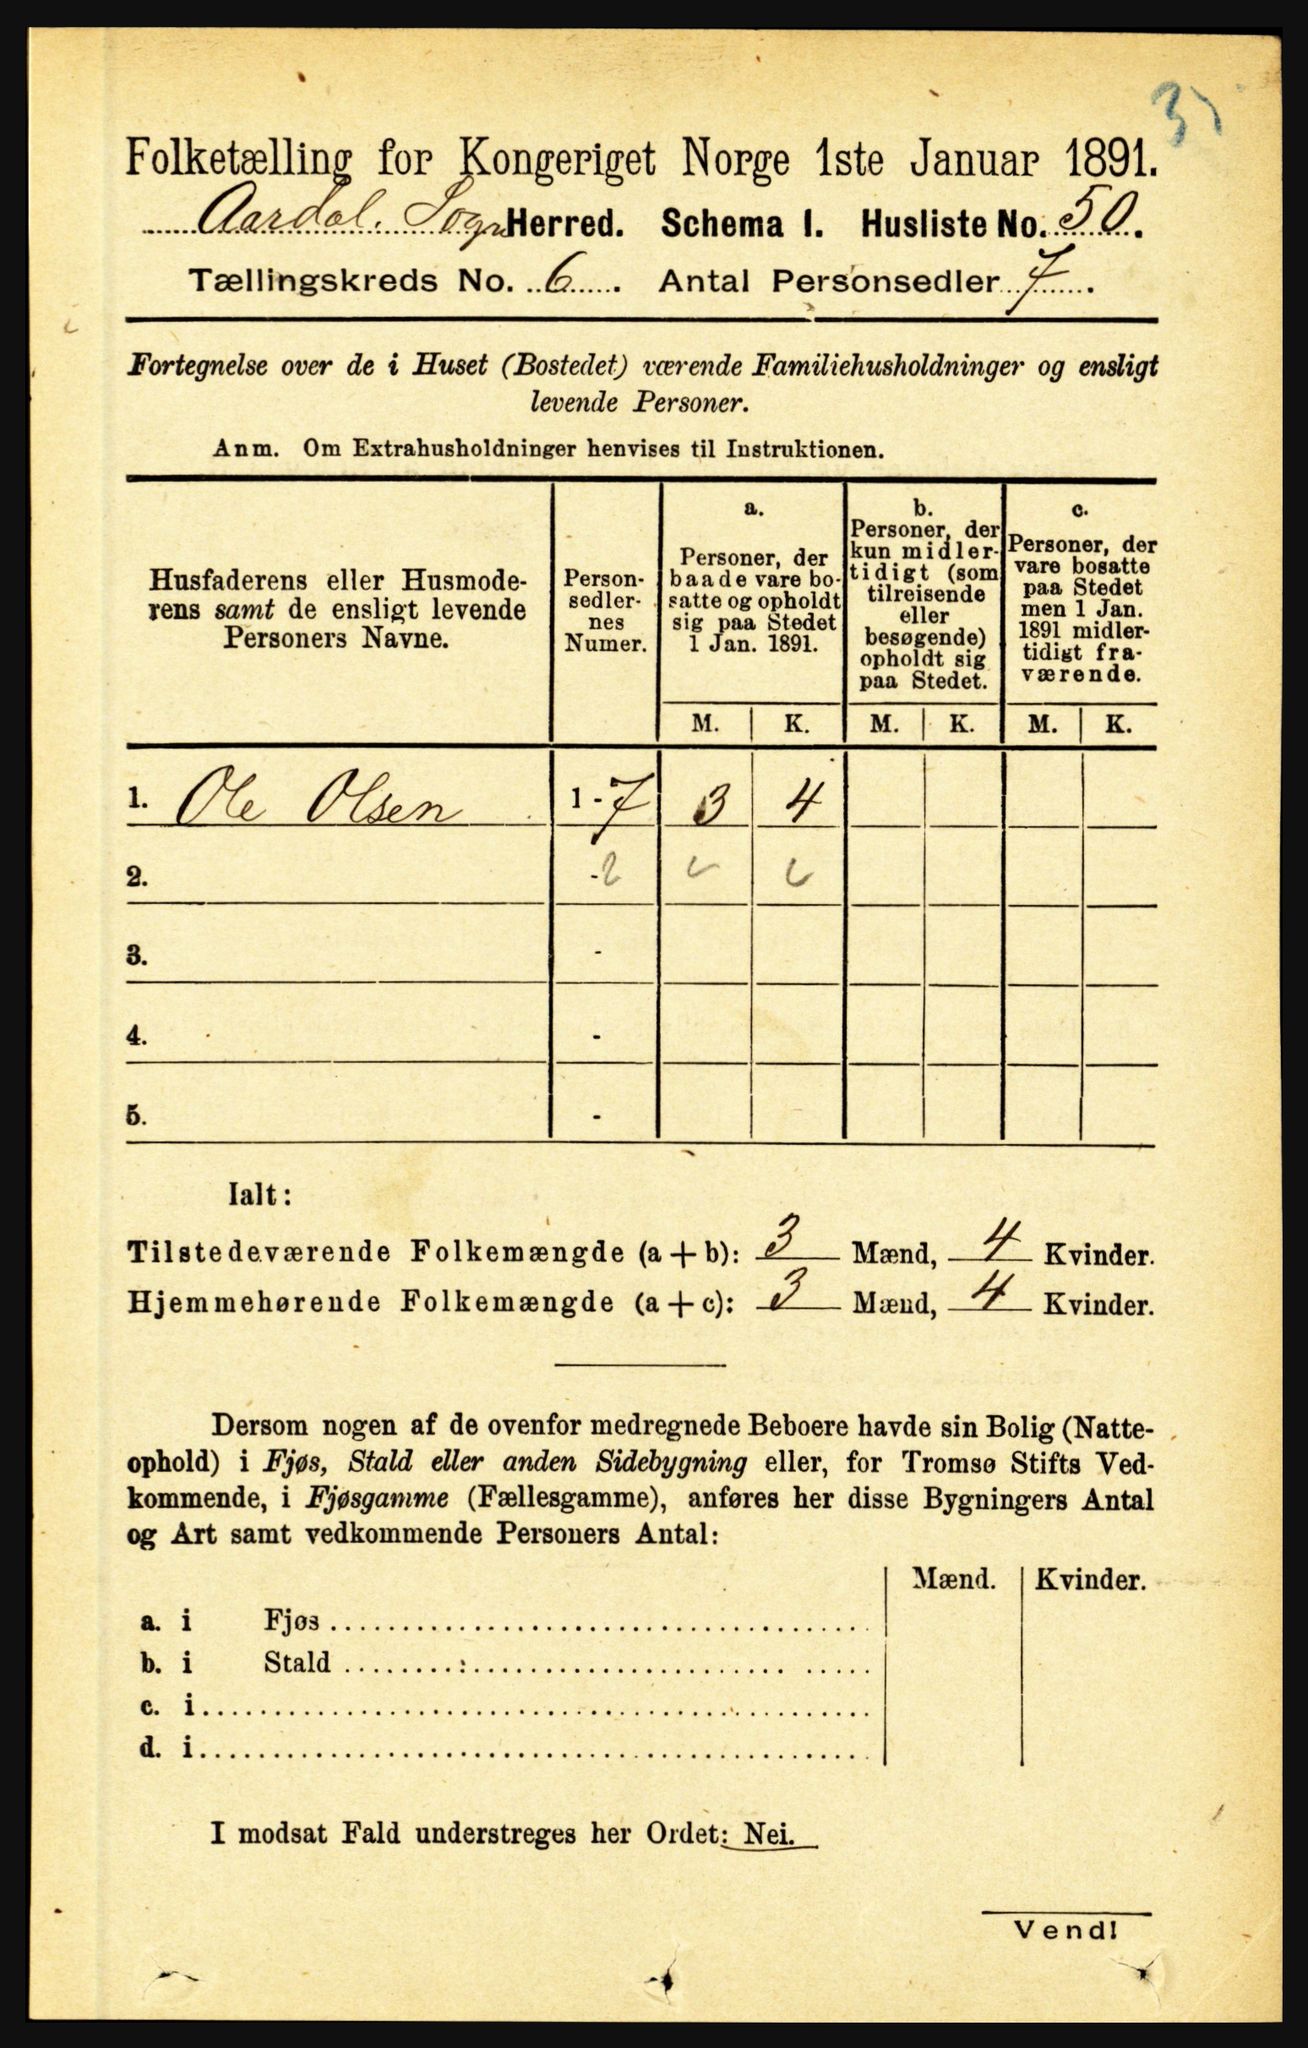 Folketælling for Kongeriget Norge 1ste Januar 1891.
Aardal. Sogn Herred. Schema I. Husliste No. 50.
Tællingskreds No. 6. Antal Personsedler 7.
Fortegnelse over de i Huset (Bostedet) værende Familiehusholdninger og ensligt
levende Personer.
Anm. Om Extrahusholdninger henvises til Instruktionen.
Husfaderens eller Husmode-
rens samt de ensligt levende
Personers Navne.
Person-
sedler-
nes
Numer.
a.
Personer, der
baade vare bo-
satte og opholdt
sig paa Stedet
1 Jan. 1891.
b.
Personer, der
kun midler-
tidigt (som
tilreisende
eller
besøgende)
opholdt sig
paa Stedet.
c.
Personer, der
vare bosatte
paa Stedet
men 1 Jan.
1891 midler-
tidigt fra-
værende.
M. K. M. K. M. K.
1. Ole Olsen 1 - 7 3 4
2. -
3. -
4. -
5. -
Ialt:
Tilstedeværende Folkemængde (a + b): 3 Mænd, 4 Kvinder.
Hjemmehørende Folkemængde (a + c): 3 Mænd, 4 Kvinder.
Dersom nogen af de ovenfor medregnede Beboere havde sin Bolig (Natte-
ophold) i Fjøs, Stald eller anden Sidebygning eller, for Tromsø Stifts Ved-
kommende, i Fjøsgamme (Fællesgamme), anføres her disse Bygningers Antal
og Art samt vedkommende Personers Antal:
Mænd. Kvinder.
a. i Fjøs
b. i Stald
c. i
d. i
I modsat Fald understreges her Ordet: Nei.
Vend!